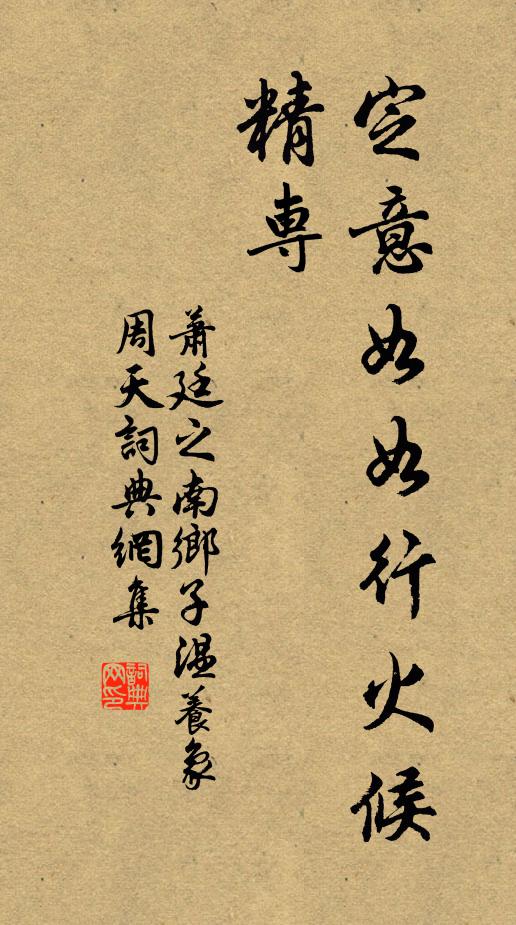 定意如如行火候
精専
蕭廷之南鄉子溫養象
周天詞典網集
詞典
网印